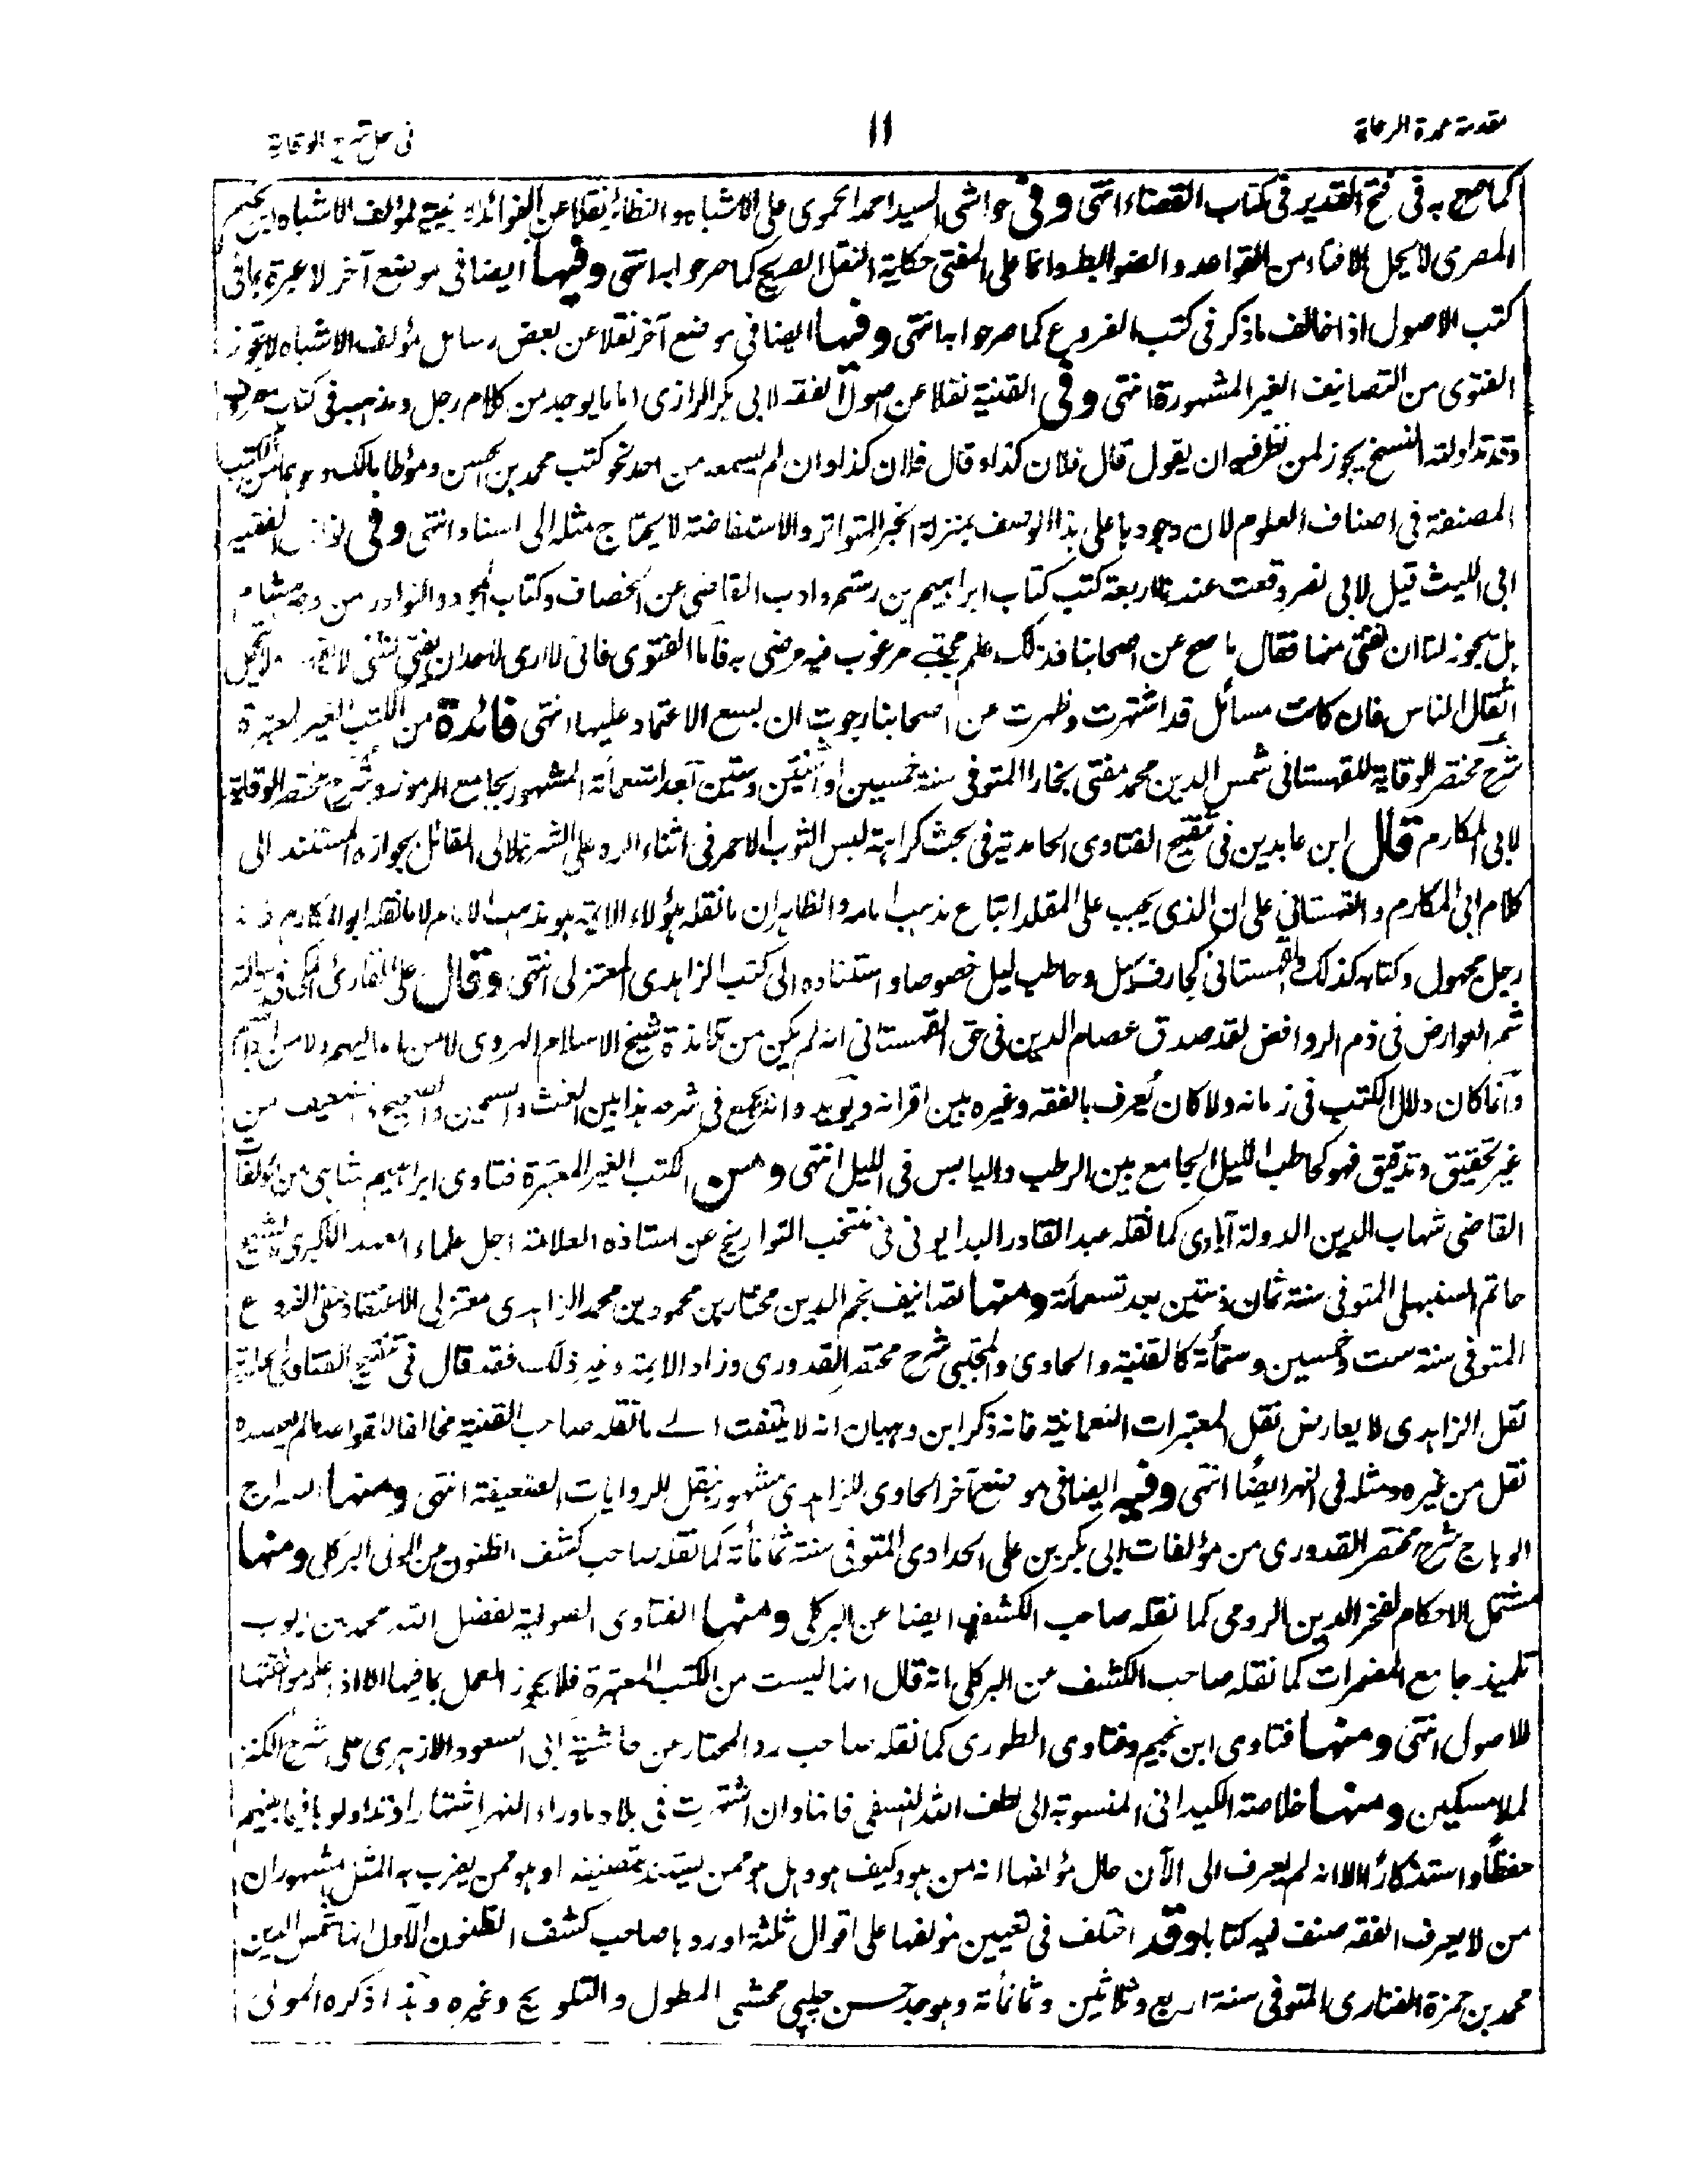 مقدمة عمدة الرعاية
١١
فى حل شرح الوقاية
كما صرح به فى فتح القدير فى كتاب القضاء انتهى وفى حواشى السيد احمد الحموى على الاشباه والنظائر نقلا عن الفوائد الزينية لمؤلف الاشباه ابن نجيم
المصرى لا يحل الافتاء من القواعد والضوابط وانما على المفتى حكاية النقل الصريح كما صرحوا به انتهى وفيها ايضا فى موضع آخر لا عبرة بما فى
كتب الاصول اذا خالف ما ذكر فى كتب الفروع كما صرحوا به انتهى وفيها ايضا فى موضع آخر نقلا عن بعض رسائل مؤلف الاشباه لا تجوز
الفتوى من التصانيف الغير المشهورة انتهى وفى القنية نقلا عن اصول الفقه لابى بكر الرازى اما ما يوجد من كلام رجل ومذهبه فى كتاب معروف
وقد تداولته النسخ يجوز لمن نظر فيه ان يقول قال فلان كذا وقال فلان كذا وان لم يسمعه من احد نحو كتب محمد بن الحسن ومؤطا مالك ونحوهما من الكتب
المصنفة فى اصناف العلوم لان وجودها على هذا الوصف بمنزلة الخبر المتواتر والاستفاضة لا يحتاج مثله الى اسناد انتهى وفى نوازل الفقيه
ابى الليث قيل لابى نصر وقعت عندنا اربعة كتب كتاب ابراهيم بن رستم وادب القاضى عن الخصاف وكتاب المجرد والنوادر من وجه هشام
هل يجوز لنا ان نفتى منها فقال ما صح عن اصحابنا فذلك علم مجتبى مرغوب فيه مرضى به فاما الفتوى فانى لا ارى لاحد ان يفتى بشئ لا يفهمه ولا يتحمل
اثقال الناس فان كانت مسائل قد اشتهرت وظهرت عن اصحابنا رجوت ان يسع الاعتماد عليها انتهى فائدة من الكتب الغير المعتبرة
شرح مختصر الوقاية للقهستانى شمس الدين محمد مفتى بخارا المتوفى سنة خمسين او اثنتين وستين بعد تسعمائة المشهور بجامع الرموز وشرح مختصر الوقاية
لابى المكارم قال ابن عابدين فى تنقيح الفتاوى الحامدية فى بحث كراهة لبس الثوب الاحمر فى اثناء الرد على الشرنبلالى القائل بجوازه المستند الى
كلام ابى المكارم والقهستانى على ان الذى يجب على المقلد اتباع مذهب امامه والظاهر ان ما نقله هؤلاء الائمة هو مذهب الامام لا ما نقله ابو المكارم فانه
رجل مجهول وكتابه كذلك والقهستانى كجارف سيل وحاطب ليل خصوصا واستناده الى كتب الزاهدى المعتزلى انتهى وقال على القارئ المكى فى رسالته
شم العوارض فى ذم الروافض لقد صدق عصام الدين فى حق القهستانى انه لم يكن من تلامذة شيخ الاسلام الهروى لا من اعاليهم ولا من ادانيهم
وانما كان دلال الكتب فى زمانه ولا كان يعرف بالفقه وغيره بين اقرانه ويؤيده انه يجمع فى شرحه هذا بين الغث والسمين والصحيح والضعيف من
غير تحقيق وتدقيق فهو كحاطب الليل الجامع بين الرطب واليابس فى الليل انتهى ومن الكتب الغير المعتبرة فتاوى ابراهيم شاهى من مؤلفات
القاضى شهاب الدين الدولة آبادى كما نقله عبد القادر البدايونى فى منتخب التواريخ عن استاذه العلامة اجل علماء العهد الاكبرى الشيخ
حاتم السنبهلى المتوفى سنة ثمان وستين بعد تسعمائة ومنها تصانيف نجم الدين مختار بن محمود بن محمد الزاهدى معتزلى الاعتقاد حنفى الفروع
المتوفى سنة ست وخمسين وستمأة كالقنية والحاوى والمجتبى شرح مختصر القدورى وزاد الائمة وغير ذلك فقد قال فى تنقيح الفتاوى الحامدية
نقل الزاهدى لا يعارض نقل المعتبرات النعمانية فانه ذكر ابن وهبان انه لا يلتفت الے ما نقله صاحب القنية مخالفا للقواعد ما لم يعضده
نقل من غيره ومثله فى النهر ايضًا انتهى وفيه ايضا فى موضع آخر الحاوى للزاهدى مشهور بنقل الروايات الضعيفة انتهى ومنها السراج
الوهاج شرح مختصر القدورى من مؤلفات ابى بكر بن على الحدادى المتوفى سنة ثمانمأة كما نقله صاحب كشف الظنون من المولى البركلى ومنها
مشتمل الاحكام لفخر الدين الرومى كما نقله صاحب الكشف ايضا عن البركلى ومنها الفتاوى الصوفية لفضل الله محمد بن ايوب
تلميذ جامع المضمرات كما نقله صاحب الكشف عن البركلى انه قال انها ليست من الكتب المعتبرة فلا يجوز العمل بما فيها الا اذا علم موافقتها
للاصول انتهى ومنها فتاوى ابن نجيم وفتاوى الطورى كما نقله صاحب رد المحتار عن حاشية ابى السعود الازهرى على شرح الكنز
لملا مسكين ومنها خلاصة الكيدانى المنسوبة الى لطف الله النسفى فانها وان اشتهرت فى بلاد ماوراء النهر اشتهارا وتداولوها فيما بينهم
حفظًا واستذكارًا الا انه لم يعرف الى الآن حال مؤلفها انه من هو وكيف هو وهل هو ممن يستند بتصنيفه او هو ممن يضرب به المثل المشهور ان
من لا يعرف الفقه صنف فيه كتابا وقد اختلف فى تعيين مؤلفها على اقوال ثلثة اوردها صاحب كشف الظنون الاول انها لشمس الدين
محمد بن حمزة الفنارى المتوفى سنة اربع وثلاثين وثمانمأة وهو جد حسن چلپى محشى المطول والتلويح وغيره وهذا ذكره المولى